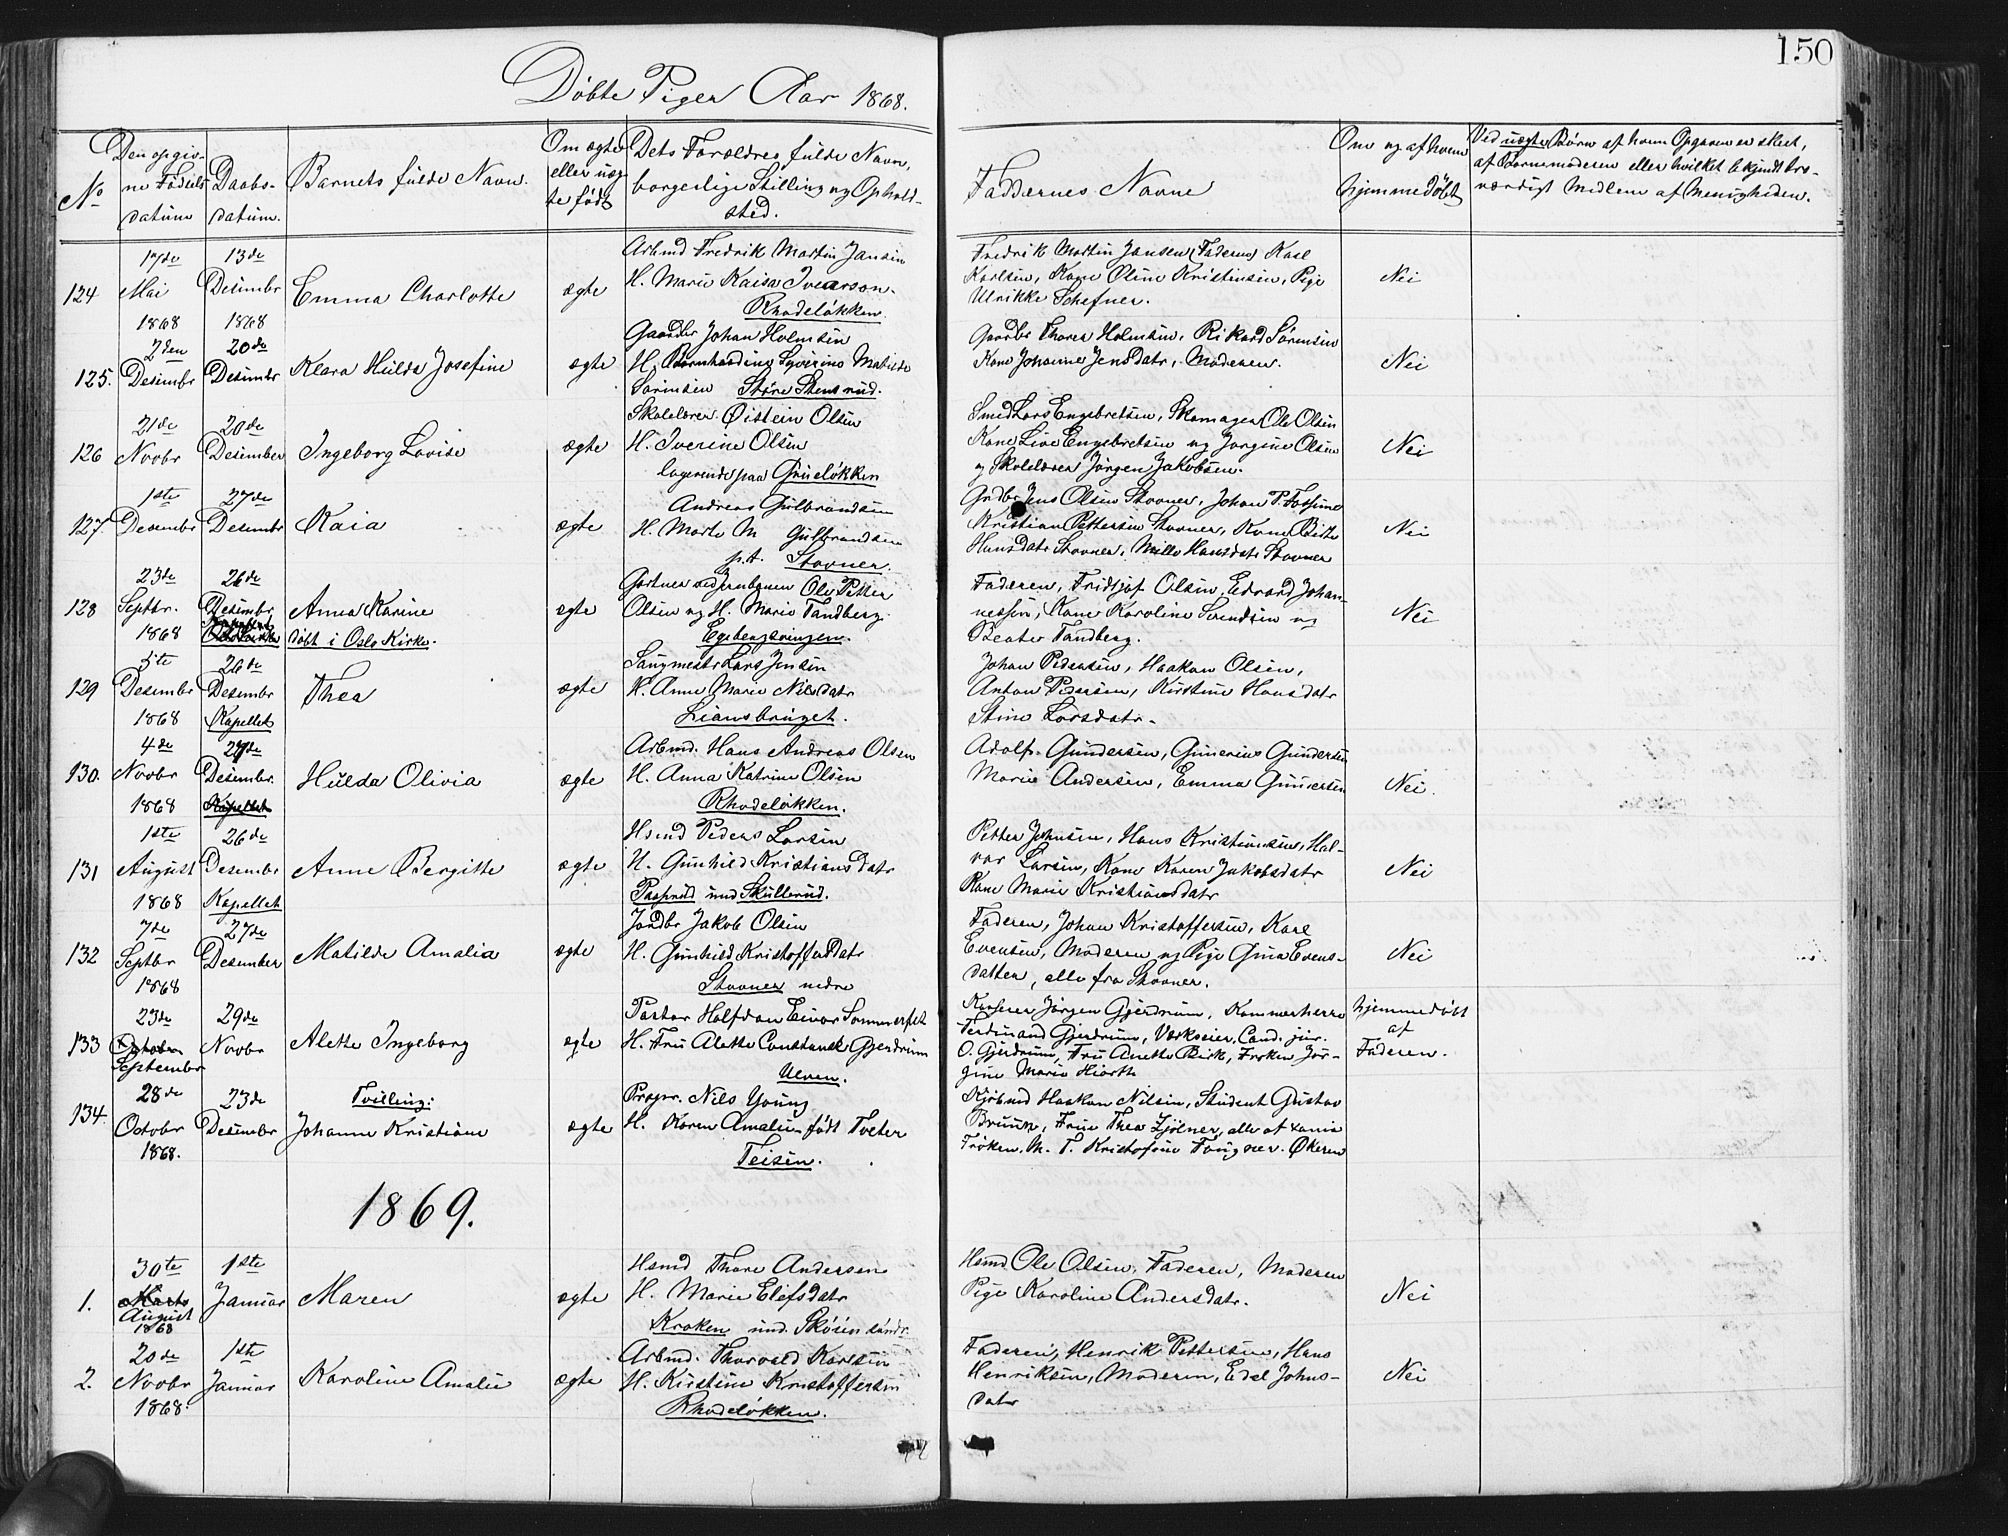 150
Döbte Piger Aar 1868.
No
Den opgiv-
ne Födsels
datum
Daabs-
datum.
Barnets fulde Navn.
Om ægte
eller uæg-
te født
Dets Forældres fulde Navn,
borgerlige Stilling og Ophold-
sted.
Faddernes Navne
Om og af hvem
hjemmedöbt
Ved uægte Børn af hvem Opgaven er skeet,
af Barnemoderen eller hvilket bekjendt tro-
værdigt Medlem af Menigheden.
124
17de
Mai
1868
13de
Desembr
1868
Emma Charlotte
ægte
Arbmd Fredrik Martin Jansen
H. Marie Kaisa Ivearson.
Rhodeløkken.
Fredrik Martin Jansen (Faderen) Karl
Karlsen, Kone Oline Kristensen, Pige
Ulrikke Schefner.
Nei
125.
2den
Desembr
20de
Desembr
Klara Hilda Josefine
ægte
Gaardbr Johan Holmsen
H. Bernhardine Severine Matilde
Sörensen Störe Stensrud.
Gaardbr Thorer Holmsen, Rikard Sörensen
Kone Johanne Jensdatr, Moderen.
Nei
126
21de
Novbr
20de
Desember
Ingeborg Lovise
ægte
Skolelærer Øistein Olsen
H. Iverine Olsen
logerende paa Grüneløkken
Smed Lars Engebretsen, Skomager Ole Olsen
Kone Live Engebretsen og Jorgine Olsen
og Skolelærer Jörgen Jakobsen.
Nei
127.
1ste
Decembr
27de
Desembr
Kaia
ægte
Andreas Gulbrandsen
H. Marte M Gulbrandsen
p.t. Stovner.
Grdbr Jens Olsen Stovner, Johan P. Fossum
Kristian Pettersen Stovner, Kone Birte
Hansdatr Stovner, Mille Hansdatr Stovner
Nei
128
23de
Septbr.
1868
26de
Desembr
Anna Karine
döbt i Oslo Kirke.
ægte
Gartner ved Jernbanen Ole Petter
Olsen og H. Marie Tandberg.
Egebergskringen.
Faderen, Fridtjof Olsen, Edvard Johan-
nessen, Kone Karoline Svendsen og
Beate Tandberg.
Nei
129
5te
Desembr
1868
26de
Desembr
Kapellet
Thea
ægte
Saugmestr Lars Jensen
H. Anne Marie Nilsdatr
Liansbruget.
Johan Pedersen, Haakon Olsen,
Anton Pedersen, Kirstine Hansdatr
Stine Larsdatr.
130.
4de
Novbr
1868
27de
Desembr.
Kapellet
Hulda Olivia
ægte
Arbmd. Hans Andreas Olsen
H. Anna Katrine Olsen
Rhodeløkken.
Adolf Gundersen, Gunerius Gundersen
Marie Andersen, Emma Gundersen
Nei.
131
1ste
August
1868
26de
Desembr
Kapellet
Anne Bergitte
ægte
Hsmd Peder Larsen
H. Gunhild Kristiansdatr
Paaprud und Skullerud.
Petter Johnsen, Hans Kristiansen, Hal-
vor Larsen, Kone Karen Jakobsdatr
Kone Marie Kristiansdatr
Nei
132
7de
Septbr
1868
27de
Desember
Matilde Amalia
ægte
Jordbr Jakob Olsen
H. Gunhild Kristoffersdatr
Stovner nedre
Faderen, Johan Kristoffersen, Karl
Evensen, Moderen og Pige Gina Evens-
datter, alle fra Stovner.
Nei
133
23de
October
September
29de
Novbr
Alette Ingeborg
ægte
Pastor Halfdan Einar Sommerfelt
H. Fru Alette Constance Gjerdrum
Ulven.
Kasserer Jörgen Gjerdrum, Kammerherre
Ferdinand Gjerdrum, Værkseier, Cand. jur.
O. Gjerdrum, Fru Anette Birk, Frøken Jör-
gine Marie Hiorth
hjemmedøbt
af
Faderen.
134.
28de
Octobr
1868.
23de
Desembr
Tvilling:
Johanne Kristiane
ægte
Propr. Nils Young
H. Karen Amalie født Tveter
Teisen.
Kjøbmd Haakon Nilsen, Student Gustav
Bruun, Frue Thea Zjölner, alle af Xania
Frøken M. T. Kristofine Fougner. Økern
1869.
1.
30te
Marts
August
1868
1ste
Januar
Maren
ægte
Hsmd Thore Andersen
H. Marie Elefsdatr
Kroken und. Skøien søndr.
Hsmd Ole Olsen, Faderen, Moderen
Pige Karoline Andersdatr.
Nei
2.
20de
Novbr
1868.
1ste
Januar
Karoline Amalie
ægte
Arbmd. Thorvald Karlsen
H. Kirstine Kristoffersen
Rhodeløkken.
Faderen, Henrik Pettersen, Hans
Henriksen, Moderen, Edel Johns-
datr
Nei